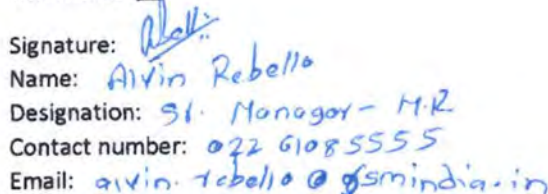 Signature:
Name: Alvin Rebello
Designation: Sr. Manager - H.R
Contact number: 022 61085555
Email: alvin.rebello@gsmindia.in